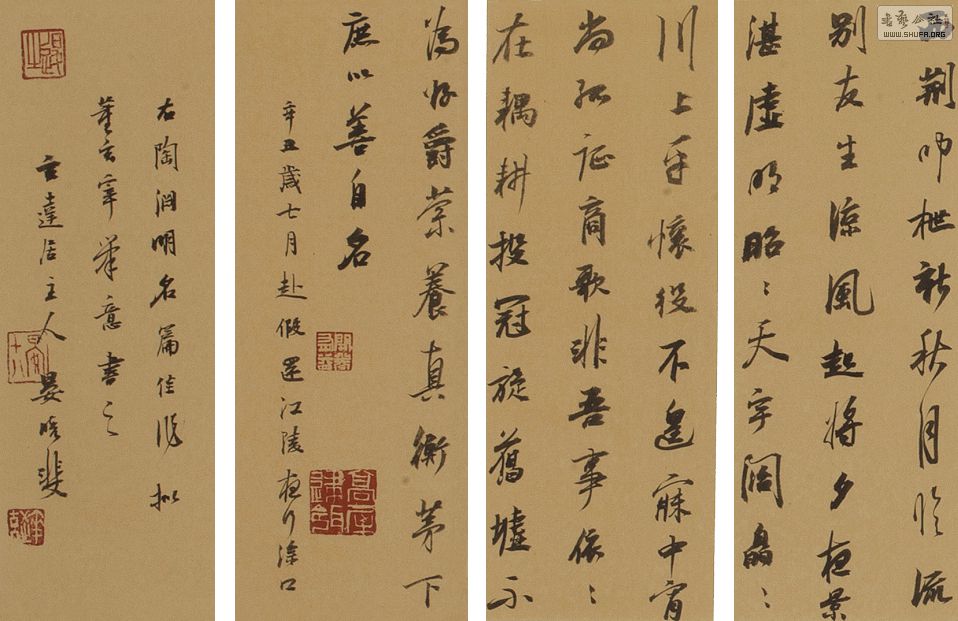 書藝公社
WWW.SHUFA.ORG
西荊叩枻新秋月臨流
別友生涼風起將夕夜景
湛虛明昭〻天宇闊皛〻
川上平懷役不遑寐中宵
尚孤征商歌非吾事依〻
在耦耕投冠旋舊墟不
為好爵縈養真衡茅下
庶以善自名
辛丑歲七月赴假還江陵夜行塗口
右陶淵明名篇佳作擬
董玄宰筆意書之
達居主人晏曉斐